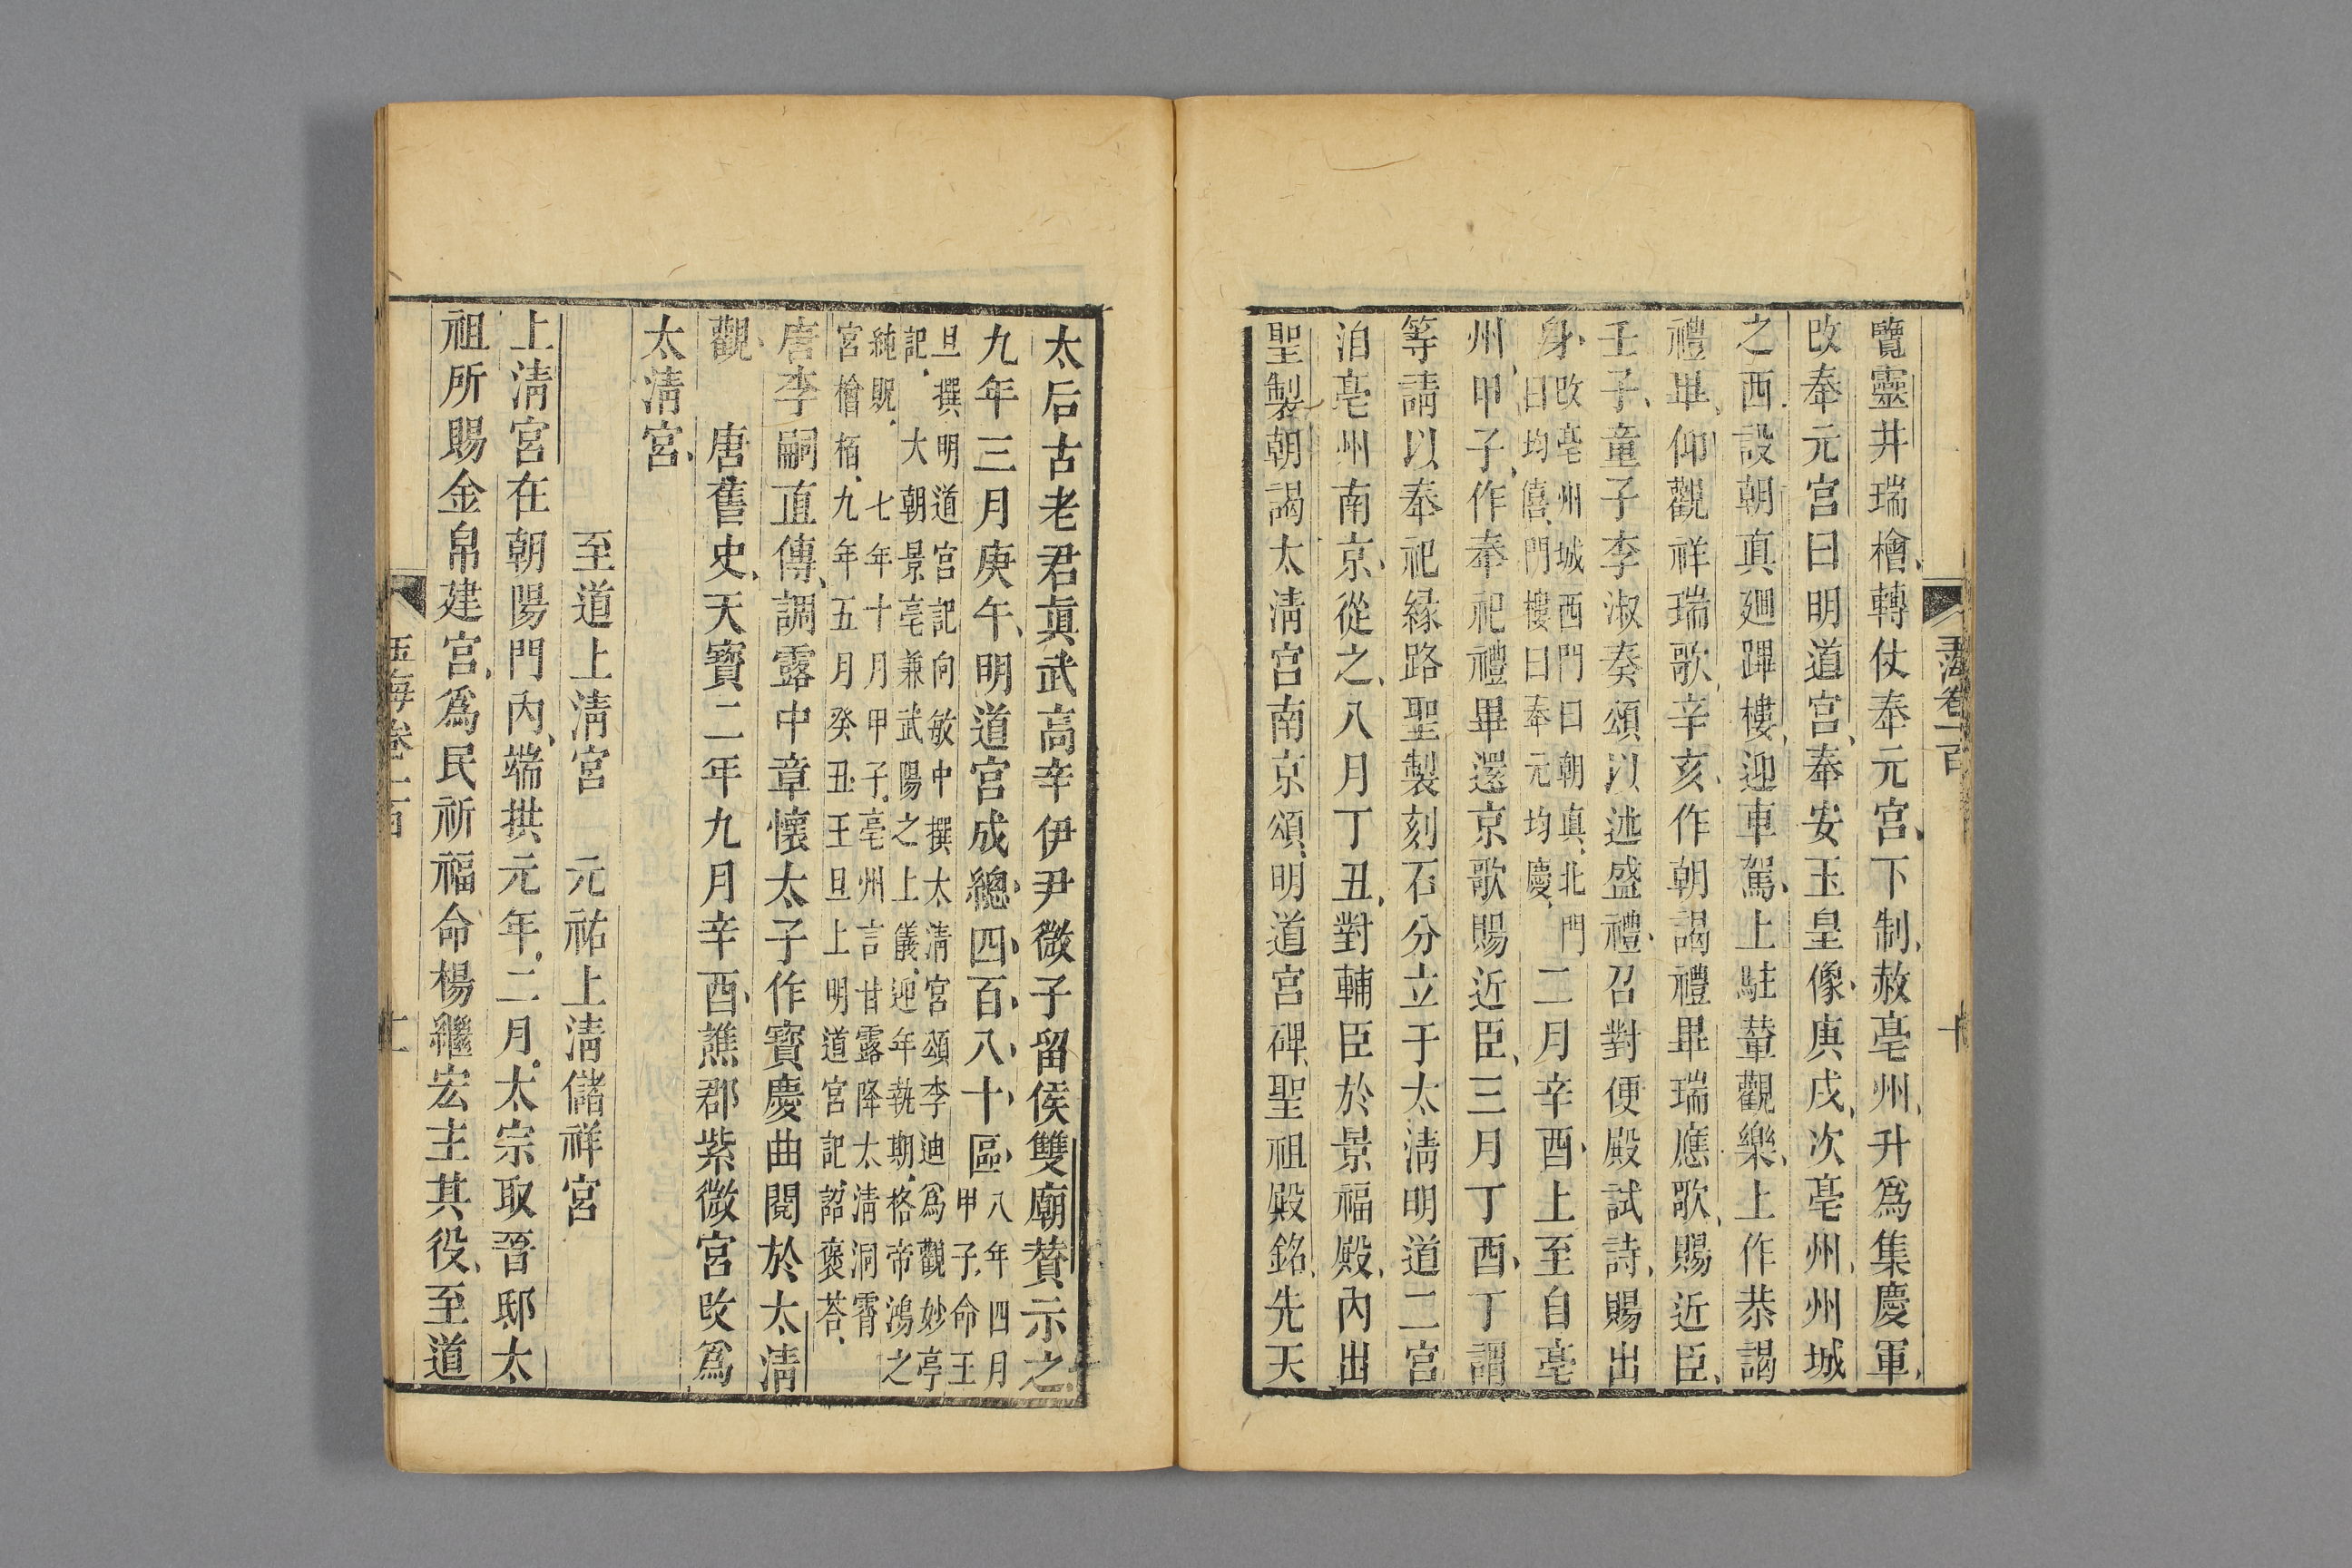 覽靈井瑞檜、轉仗奉元宮、下制、赦亳州、升爲集慶軍、
改奉元宮曰明道宮、奉安玉皇像、庚戌、次亳州、州城
之西設朝真迴蹕樓、迎車駕、上駐輦觀樂、上作恭謁
禮畢、仰觀祥瑞歌、辛亥、作朝謁禮畢瑞應歌、賜近臣、
壬子、童子李淑奏頌以述盛禮、召對便殿試詩、賜出
身、
改亳州城西門曰朝真、北門
曰均僖、門樓曰奉元均慶、
二月辛酉、上至自亳
州、甲子、作奉祀禮畢還京歌賜近臣、三月丁酉、丁謂
等請以奉祀緣路聖製刻石分立于太淸明道二宮
洎亳州南京、從之、八月丁丑、對輔臣於景福殿、內出
聖製朝謁太淸宮南京頌、明道宮碑、聖祖殿銘、先天
太后古老君眞武高辛伊尹微子留侯雙廟贊示之、
九年三月庚午、明道宮成、總四百八十區、
八年四月
甲子、命王
旦撰明道宮記、向敏中撰太淸宮頌、李迪爲觀妙亭
記、大朝景亳兼武陽之上儀、迎年執期、格帝鴻之
純貺、七年十月甲子、亳州言甘露降太淸洞霄
宮檜栢、九年五月癸丑、王旦上明道宮記、詔褒荅、
唐李嗣直傳、調露中章懷太子作寳慶曲閱於太淸
觀、唐舊史、天寶二年九月辛酉、譙郡紫微宮改爲
太淸宮、
至道上淸宮 元祐上淸儲祥宮
上淸宮在朝陽門內、端拱元年、二月、太宗取晉邸太
祖所賜金帛建宮、爲民祈福命楊繼宏主其役、至道
玉海卷一百
十
玉海卷一百
十一